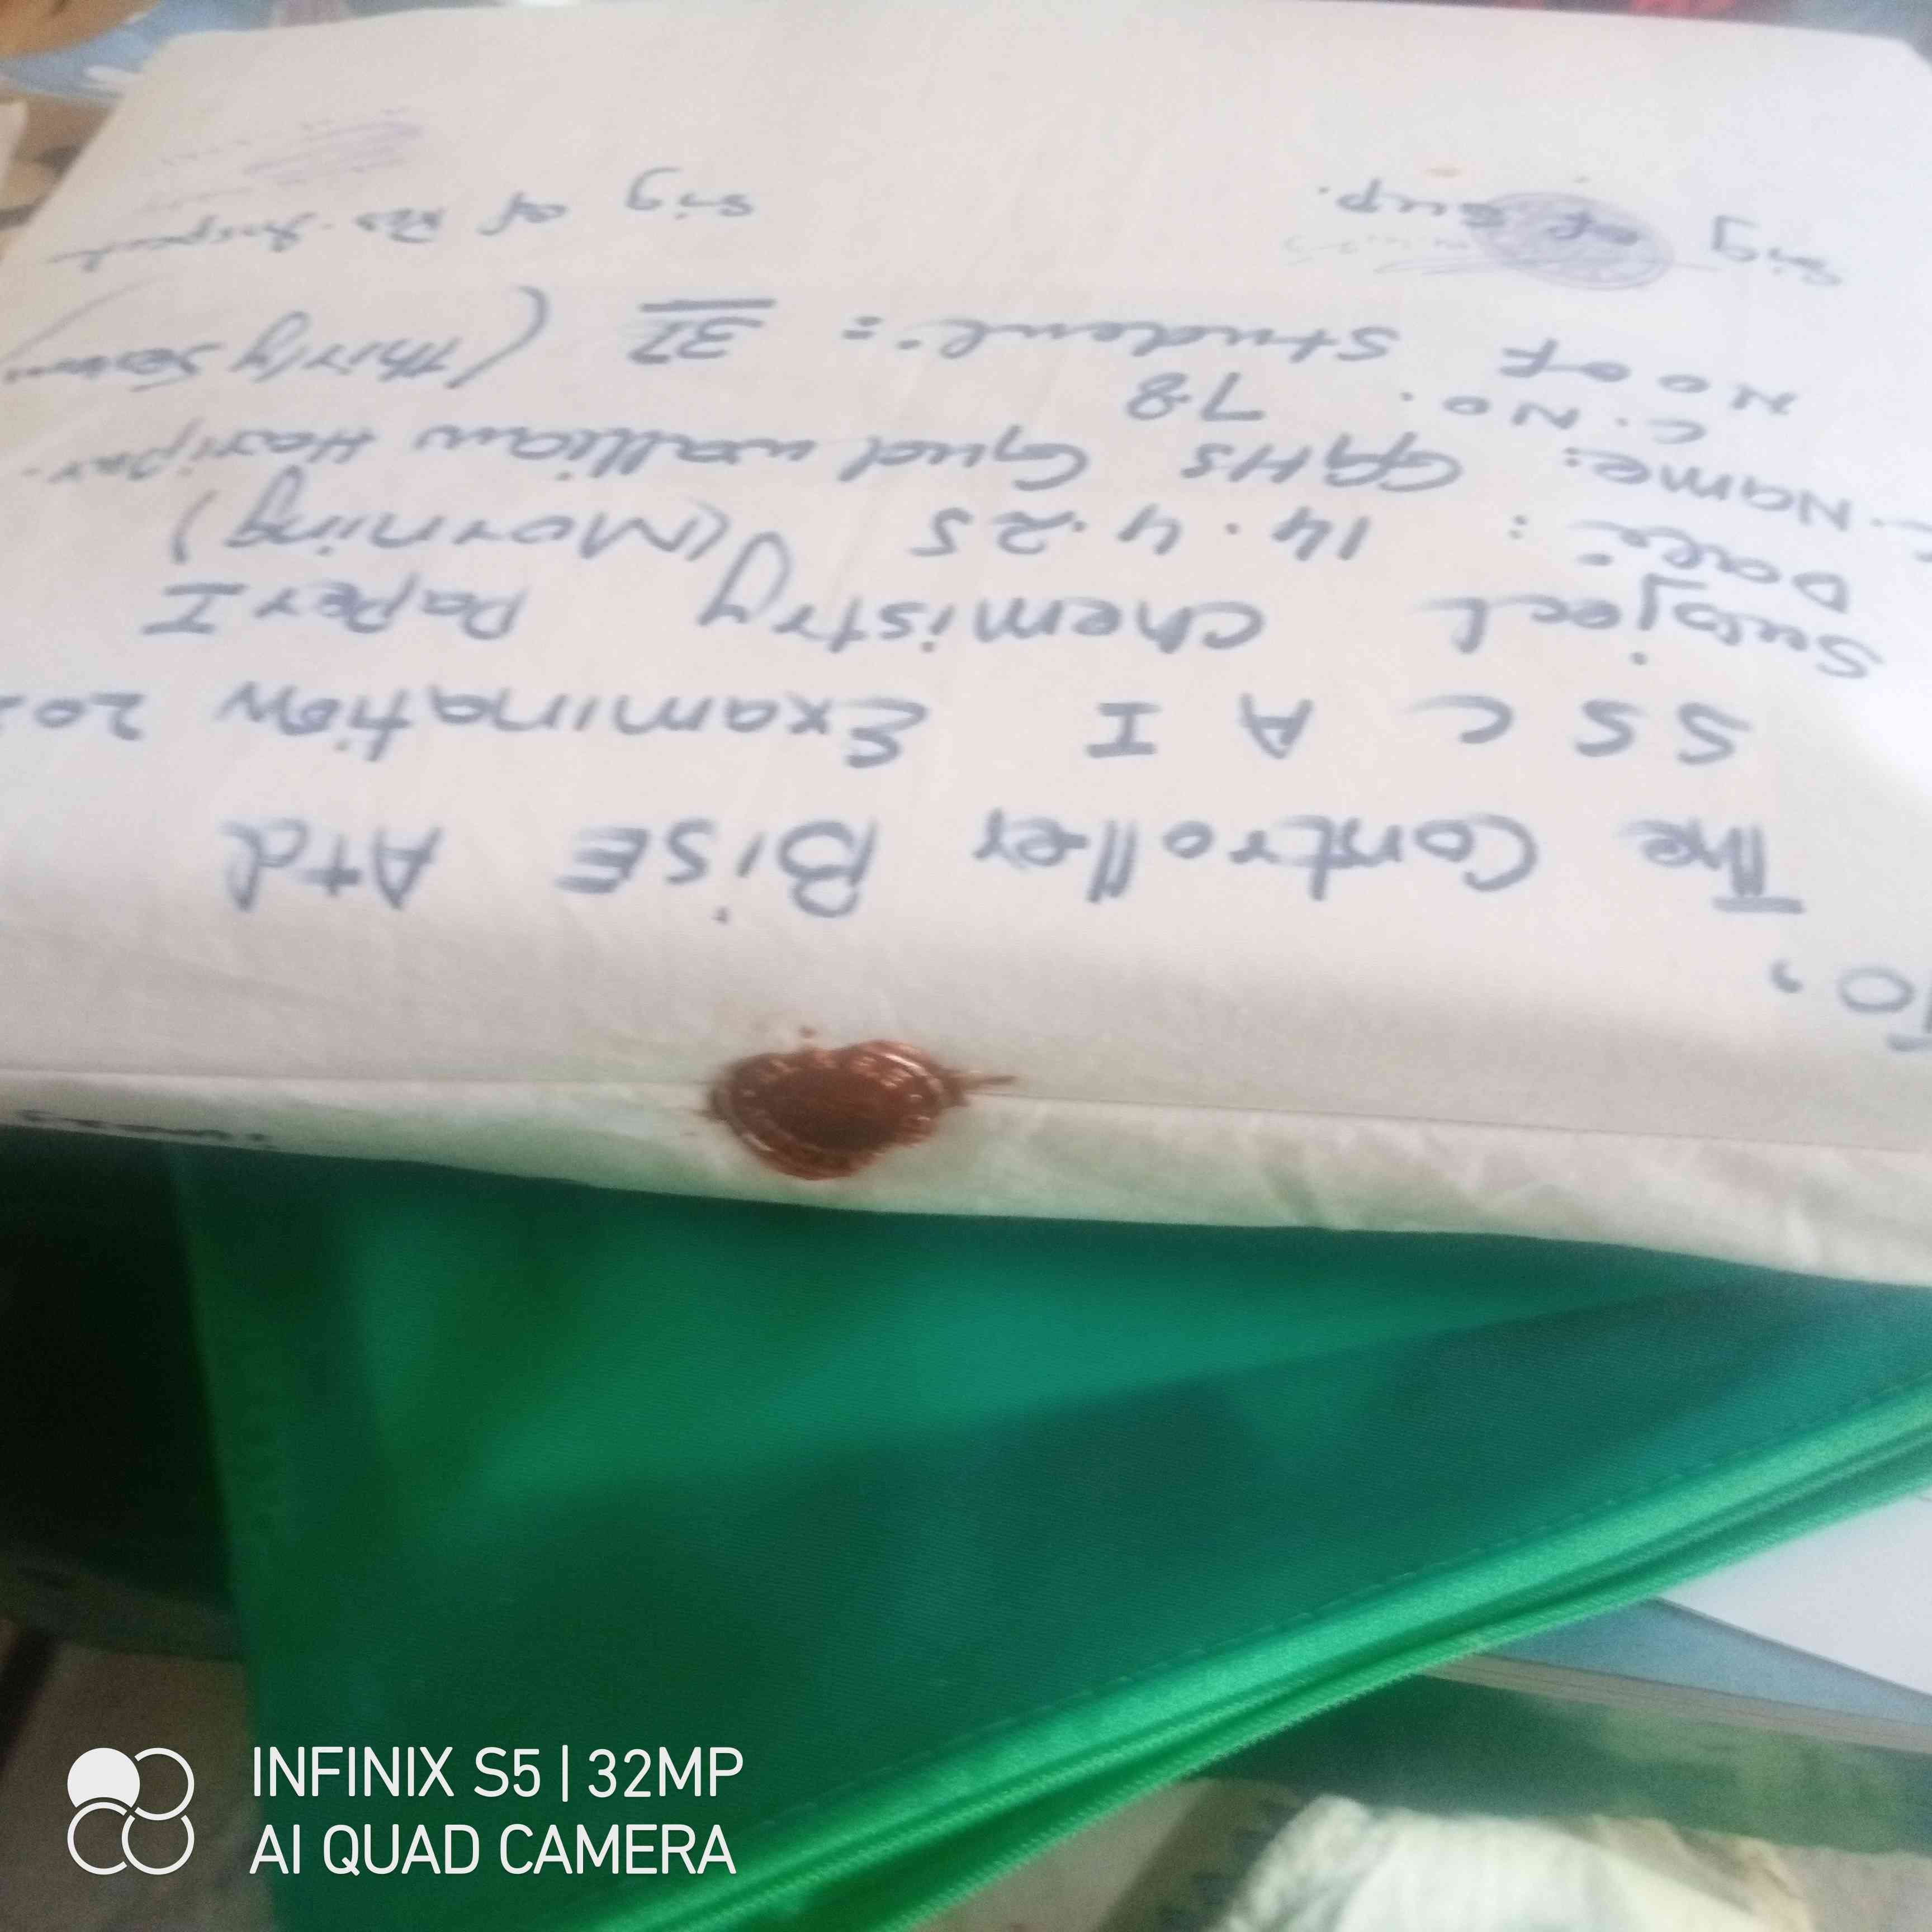 To,
The Controller BiSE Atd
SSC A I Examination 202
Subject Chemistry Paper I
Date: 14.4.25 (Morning)
C. Name: GGHS Gud wallian Haripur.
C. No. 78
No of Student: 37 (thirty Seven
Sig of Sup.
Sig of Res. Inspect
INFINIX S5 | 32MP
AI QUAD CAMERA